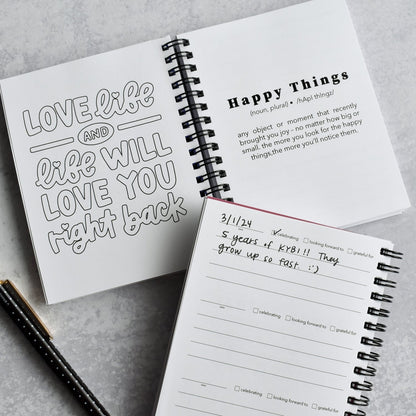 LOVE life
AND
life WILL
LOVE YOU
right back
Happy Things
(noun, plural) • /hApI thIngz/
any object or moment that recently
brought you joy - no matter how big or
small. the more you look for the happy
things,the more you'll notice them.
3/1/24 ✓celebrating □looking forward to □grateful for
5 years of KYB1!! They
grow up so fast :')
□celebrating □looking forward to □grateful for
□celebrating □looking forward to □grateful for